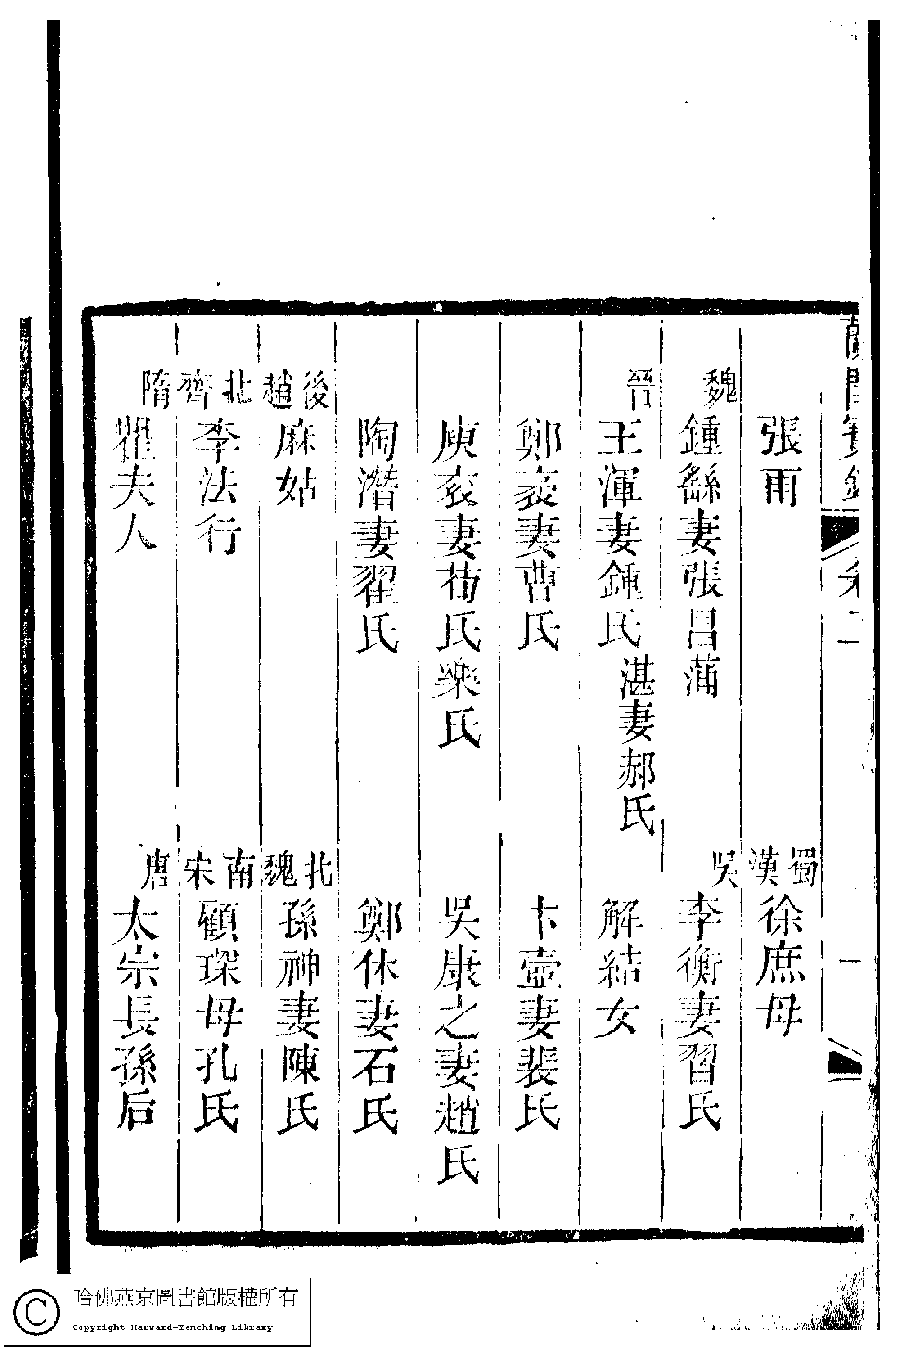 卷二
一
張雨
蜀漢徐庶母
魏鍾繇妻張昌蒲
吳李衡妻習氏
晉王渾妻鍾氏湛妻郝氏
解結女
鄭袤妻曹氏
卞壼妻裴氏
庾袞妻荀氏樂氏
吳康之妻趙氏
陶潛妻翟氏
鄭休妻石氏
後趙麻姑
北魏孫神妻陳氏
北齊李法行
南宋顧琛母孔氏
隋瞿夫人
唐太宗長孫后
哈佛燕京圖書館版權所有
Copyright Harvard-Yenching Library